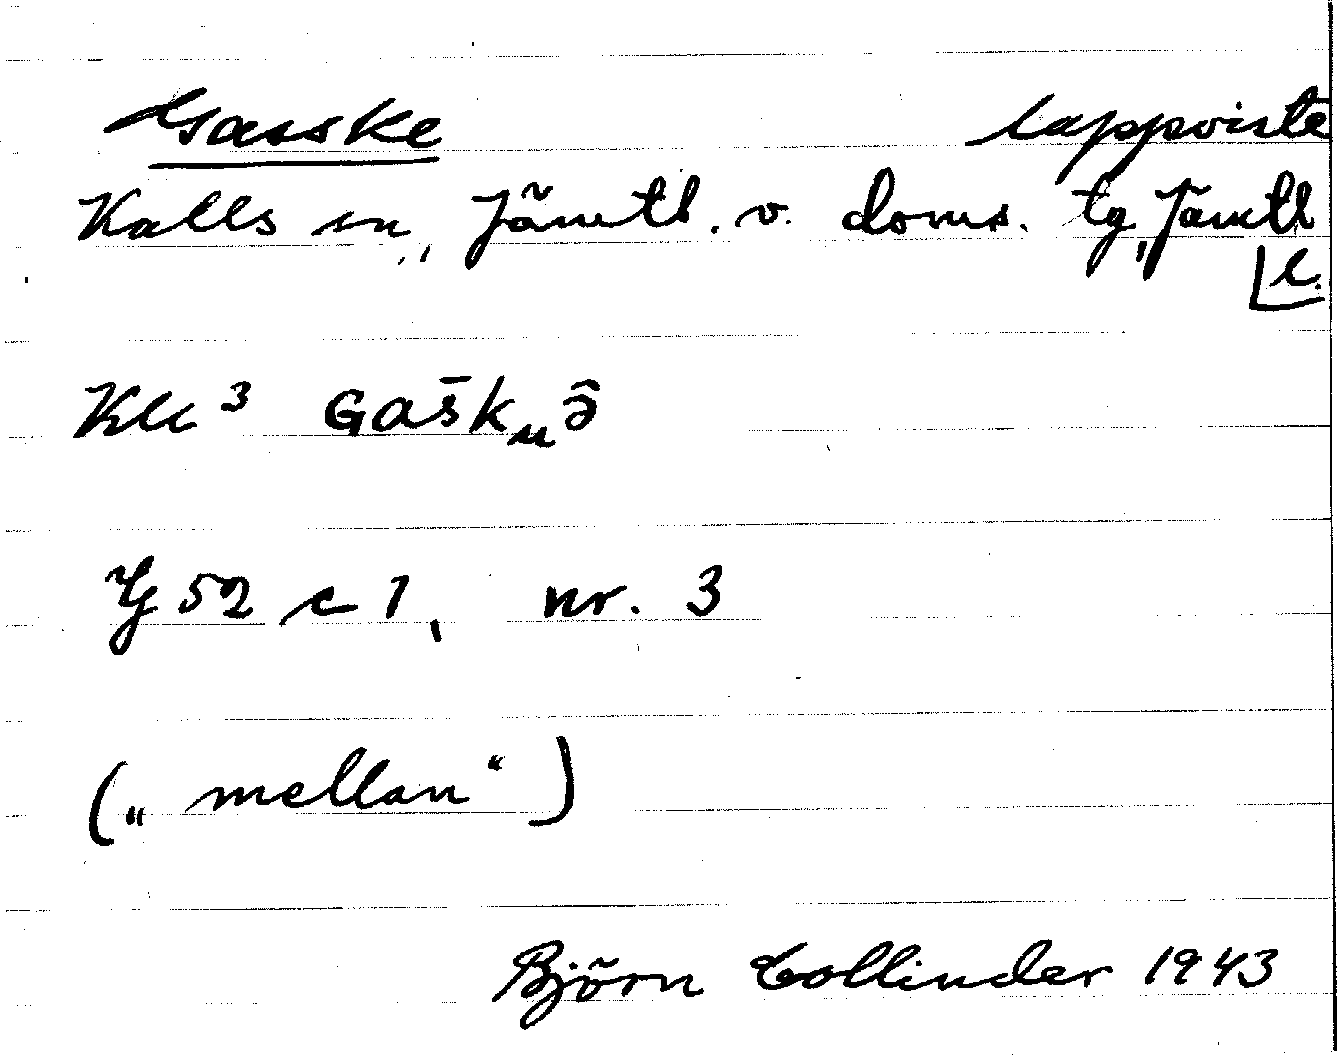 Gasske lappviste
Kalls sn, Jämtl. v. doms. tg, Jämtl
l.
Kll 3 Gašk ə̂
G 52 c 1, nr. 3
(„mellan“)
Björn Collinder 1943